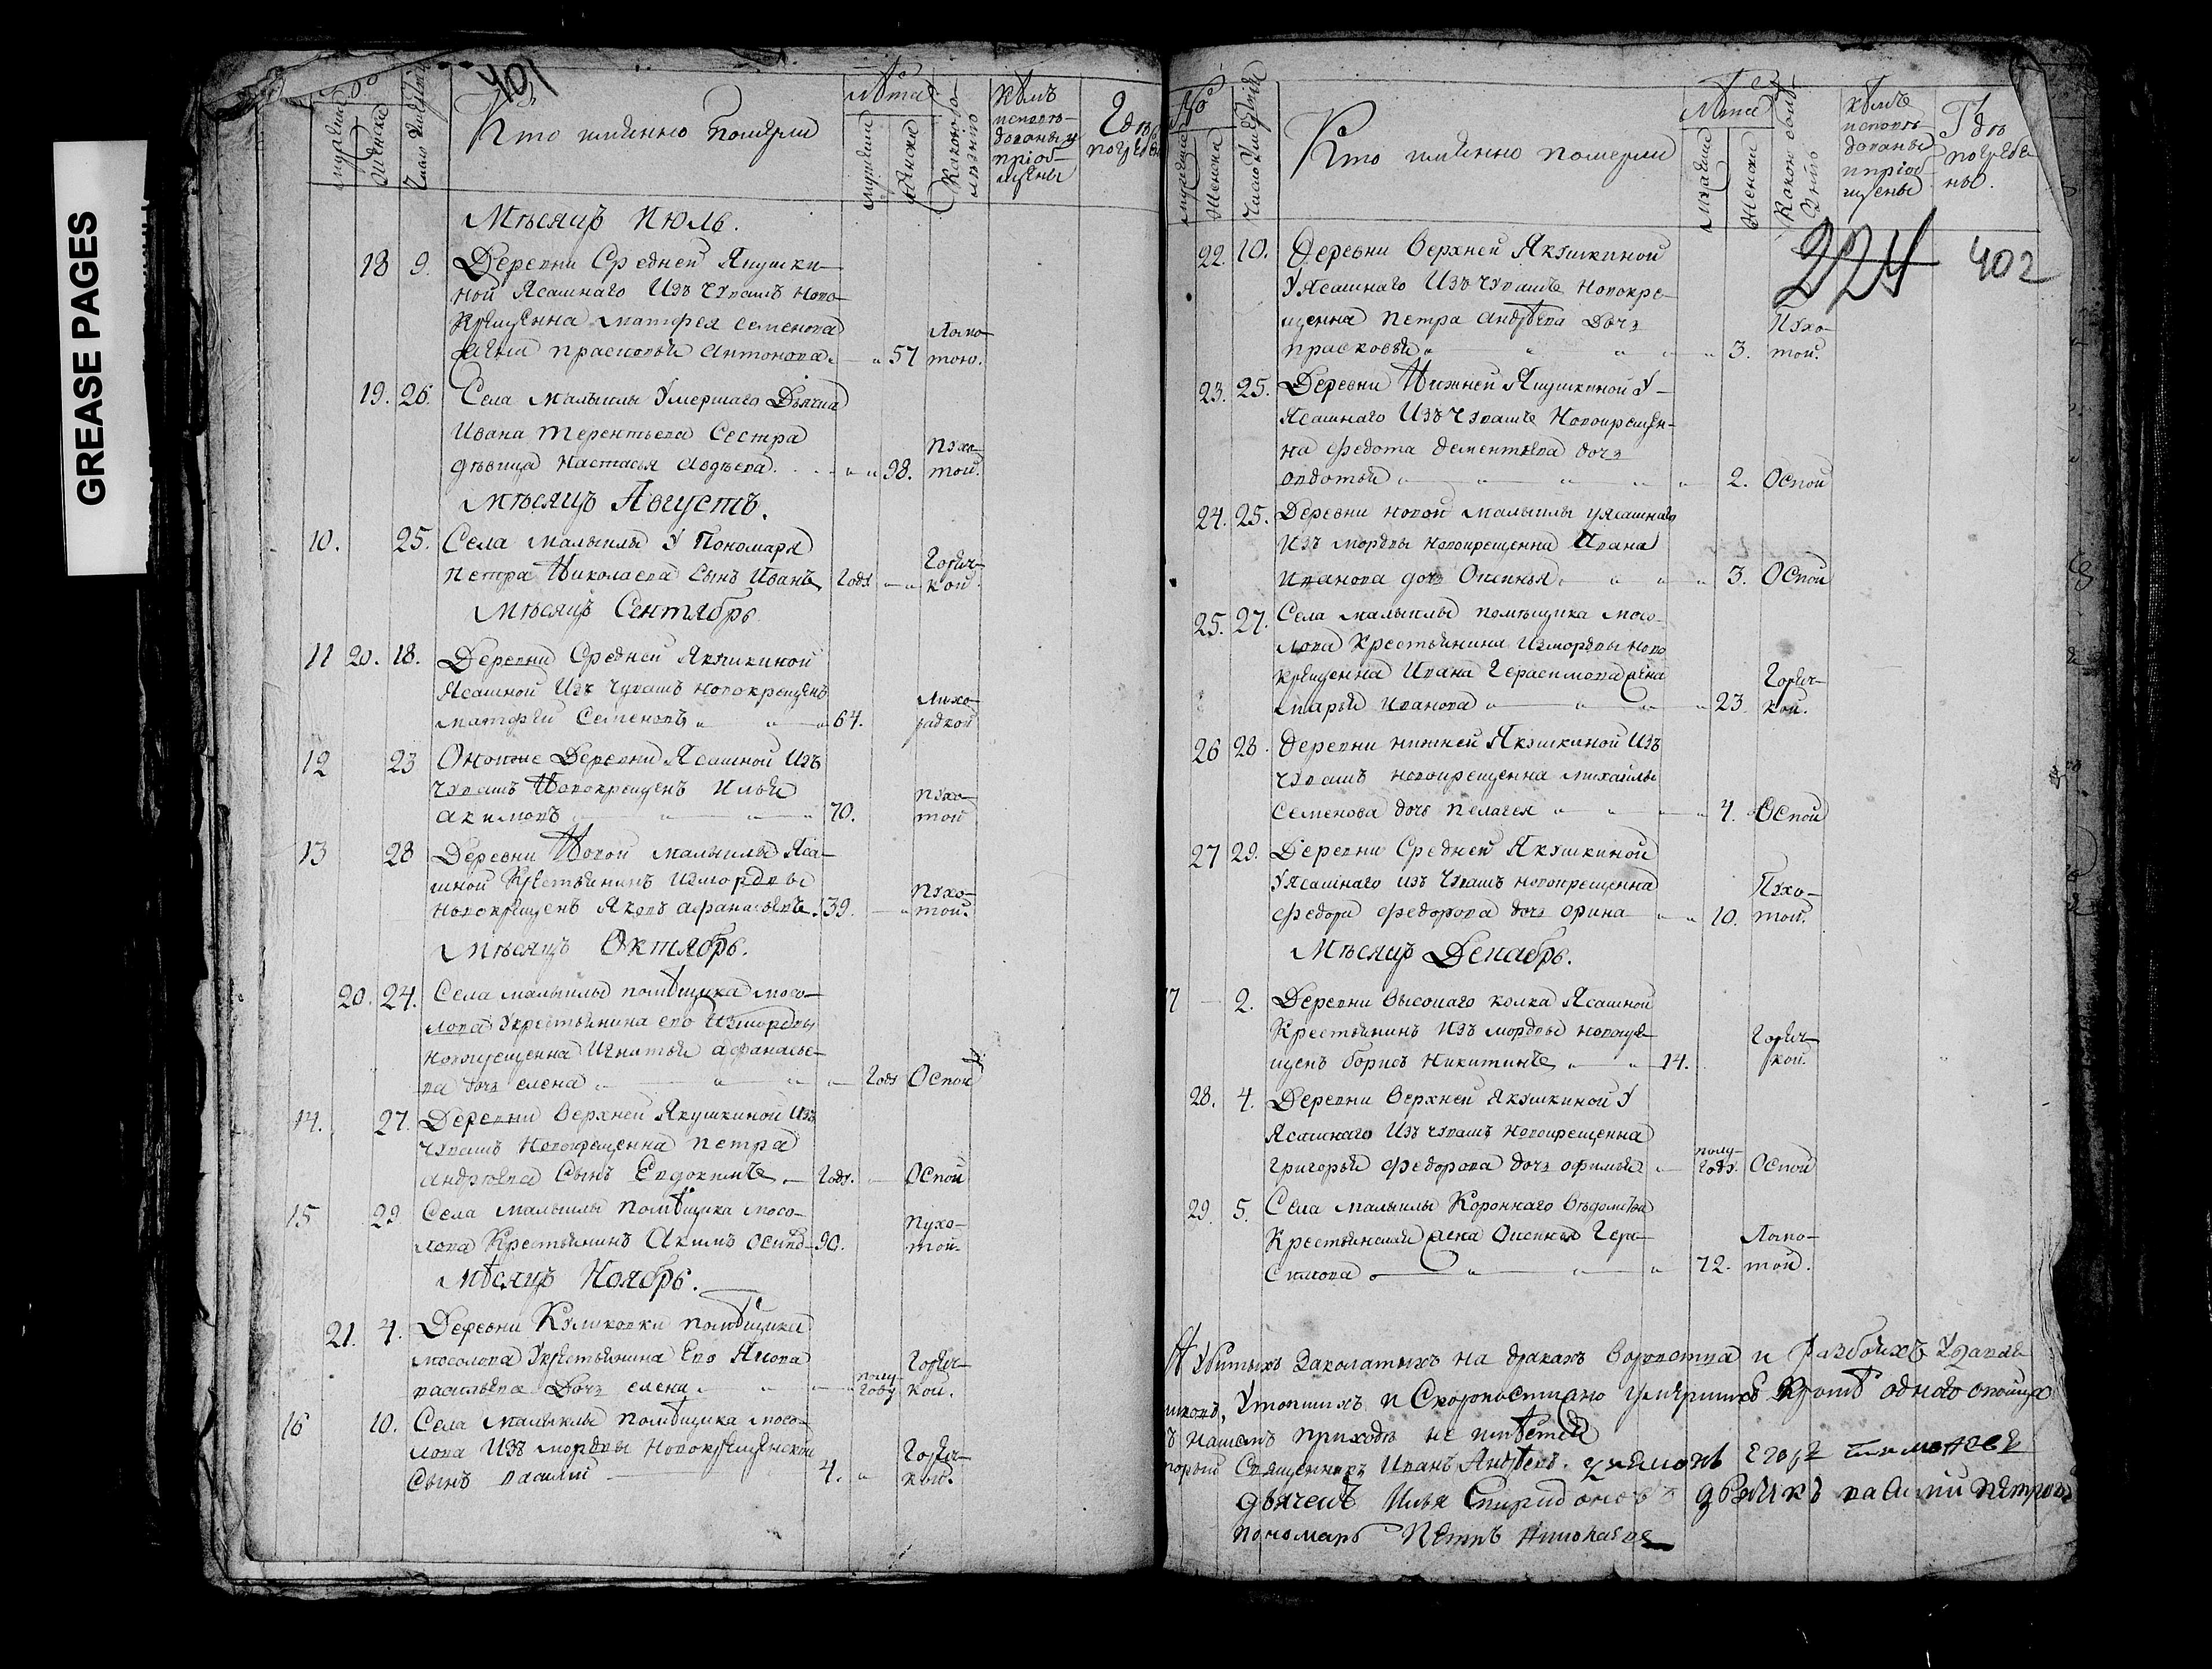 GREASE PAGES
401
№
мужеска
женска
Число умершихъ
Кто имянно померли
лѣта
мужеска
женска
Какою болѣзнию
кѣмъ исповѣдованы и приобщены
Гдѣ погребены
Мѣсяцъ Июль.
18 9. Деревни Средней Якушки-
ной Ясашнаго Изъ чувашъ ново-
крещенна матфея семенова
жена прасковья антонова 57 Ломо-
тою.
19. 26. Села малыклы умершаго Дьячка
Ивана терентьева Сестра
девица настасья авдеева 98. пухо-
той.
Мѣсяцъ Августъ.
10. 25. Села малыклы у Пономаря
петра Николаева Сынъ Иванъ Году Горяч-
кой.
Мѣсяцъ Сентябрь
11 20. 18. Деревни Средней Якушкиной
Ясашной Изъ чувашъ новокрещенъ
матфей Семеновъ 64. лихо-
радкой
12 23 Оной же Деревни Ясашной Изъ
чувашъ Новокрещенъ Илья
акимовъ 70. пухо-
той
13 28 Деревни Новой малыклы Яса-
шной Крестьянинъ Измордвы
новокрещенъ Яковъ афанасьевъ 39. пухо-
той.
Мѣсяцъ Октябрь.
20. 24. Села малыклы помѣщика мосо-
лова Укрестьянина ево Измордвы
новокрещенна Игнатья афанасье-
ва дочь елена Году Оспой
14. 27. Деревни верхней Якушкиной Изъ
чувашъ Новокрещенна петра
андреева Сынъ Евдокимъ Году. Оспой
15 29 Села малыклы помѣщика мосо-
лова Крестьянинъ Акимъ осипо- 90. пухо-
той.
Мѣсяцъ Ноябрь.
21. 4. Деревни Куликовки помѣщика
мосолова Укрестьянина Ево Якова
васильева Дочь елена полу-
году Горяч-
кой.
16 10. Села малыклы помѣщика мосо-
лова Изъ мордвы Новокрещенской
Сынъ василий 4. Горяч-
кой.
№
мужеска
женска
Число умерших
Кто имянно померли
лѣта
мужеска
женска
Какою болѣзнию
кѣмъ исповѣдованы и приобщены
Гдѣ погребены.
224 402
22. 10. Деревни Верхней Якушкиной
У Ясашнаго Изъ чувашъ новокре-
щенна петра андреева Дочь
прасковья 3. Пухо-
той.
23. 25. Деревни Нижней Якушкиной У
Ясашнаго Изъ чувашъ Новокрещен-
на федота дементьева дочь
авдотья 2. Оспой
24. 25. Деревни новой малыклы уясашнаго
Изъ мордвы новокрещенна Ивана
Иванова дочь Оксинья 3. Оспой
25. 27. Села малыклы помѣщика мосо-
лова Крестьянина Измордвы ново
крещенна Ивана Герасимова жена
марья Иванова 23 Горяч-
кой.
26 28. Деревни нижней Якушкиной Изъ
чувашъ новокрещенна михайлы
Семенова дочь пелагея 4. Оспой
27 29. Деревни Средней Якушкиной
У Ясашнаго изъ чувашъ новокрещенна
федора федорова дочь орина 10. Пухо-
той.
Мѣсяцъ Декабрь.
17 2. Деревни высокаго колка Ясашной
Крестьянинъ Изъ мордвы новокре-
щенъ борисъ Никитинъ 14. Горяч-
кой.
28. 4. Деревни верхней Якушкиной У
Ясашнаго Изъ чувашъ новокрещенна
Григорья федорова дочь офимья полу-
году. Оспой
29. 5. Села малыклы Короннаго Ведомства
Крестьянская жена Оксинья Гера-
симова 72. Ломо-
той.
А Убитыхъ Заколатыхъ на дракахъ воровства и разбояхъ
Утопшихъ и Скоропостижно умершихъ Кромѣ одного
въ Нашемъ приходѣ не имѣетца
Священникъ Иванъ Андреевъ.
дьячекъ Илья Спиридоновъ дьячикъ василий петровъ
пономарь Петръ николаевъ